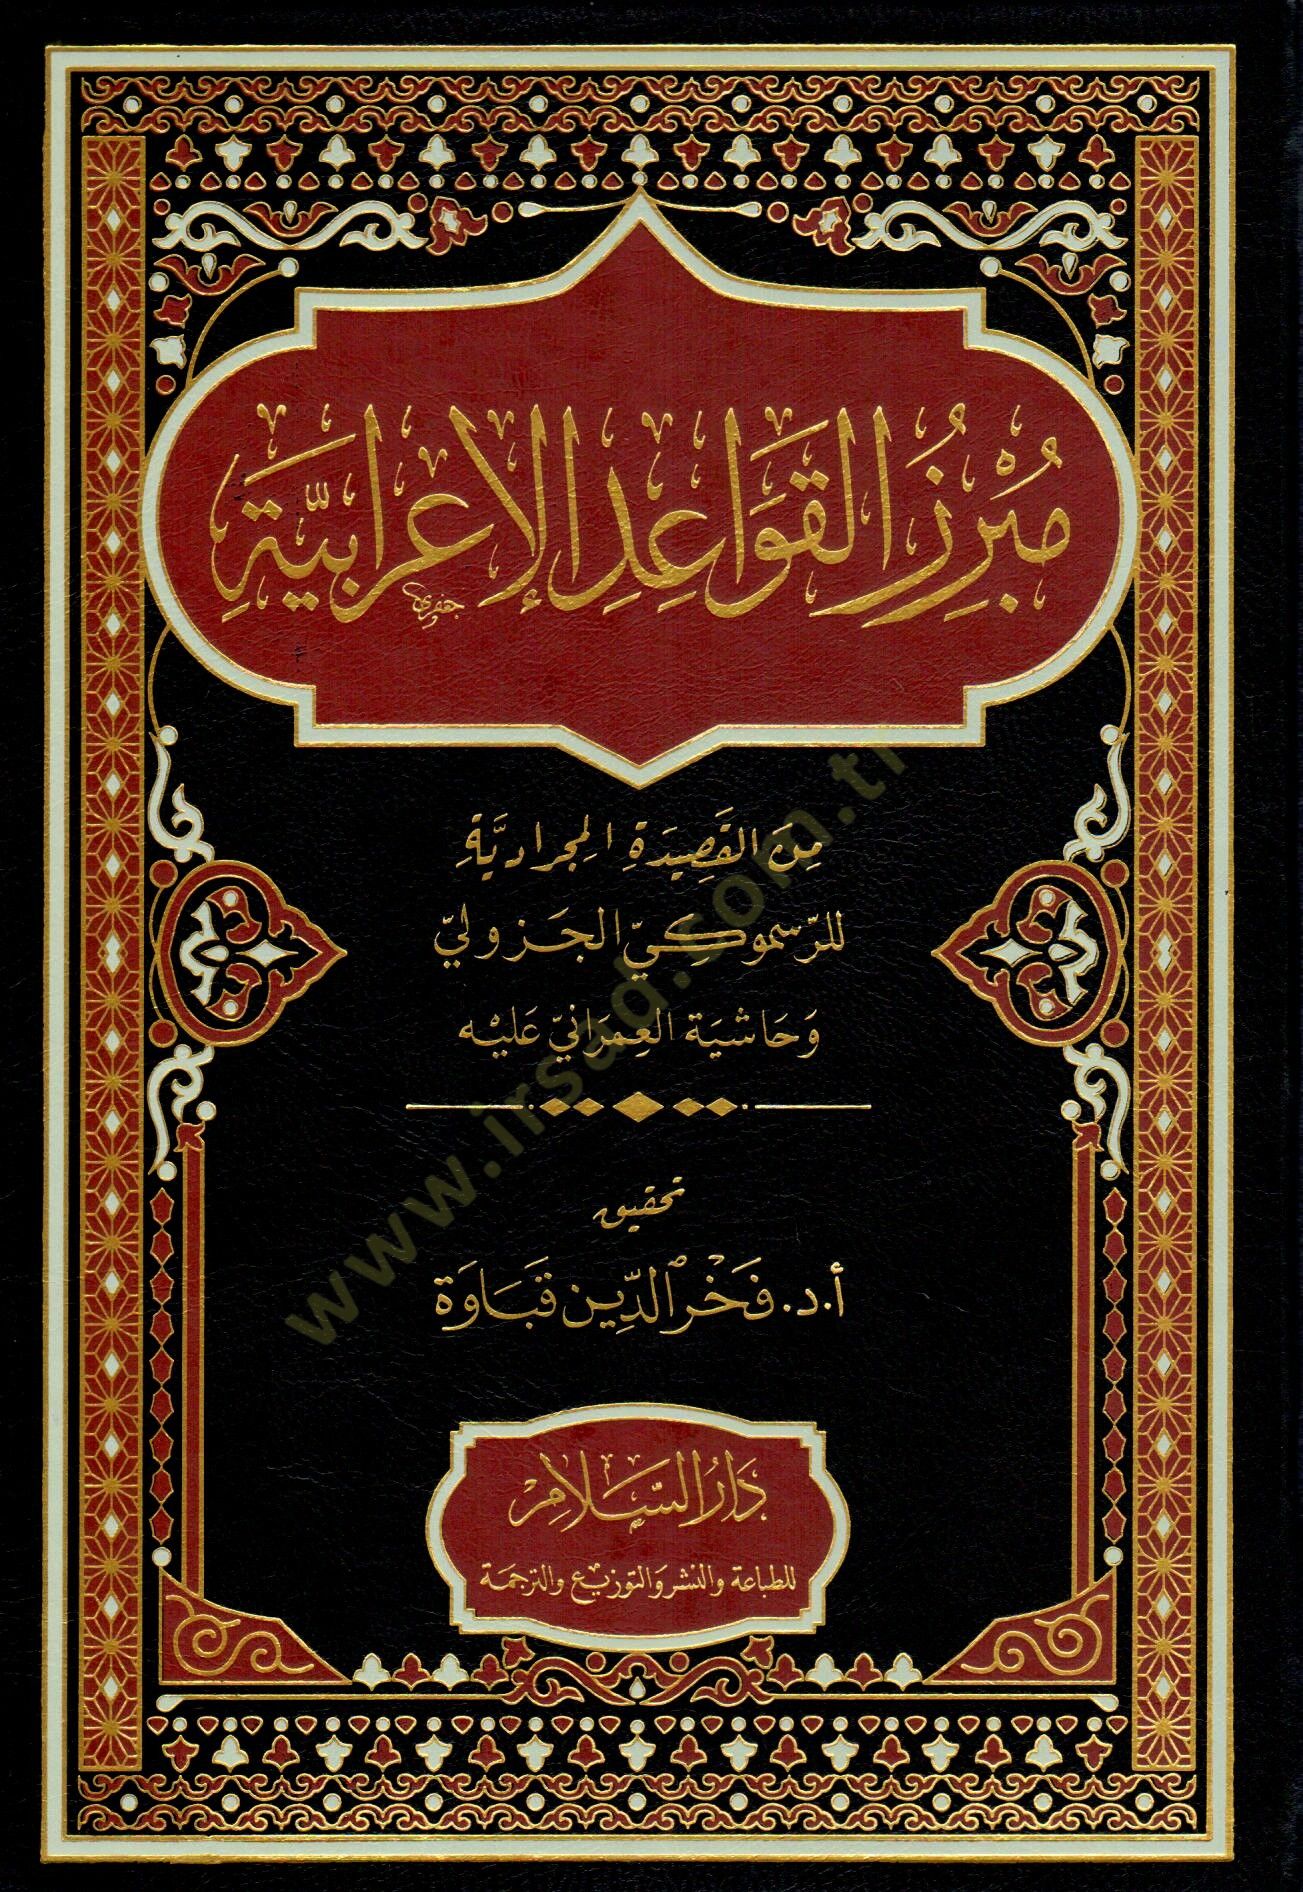 مُبْرِزُ القَوَاعِدِ الإِعْرَابِيَّةِ
مِنَ القَصِيدَةِ المِجْرَادِيَّةِ
للرّسموكيّ الجَزوليّ
وَحَاشيَة العِمرَانيّ عَليْه
تحقيق
أ.د. فَخْر الدِّين قَبَاوَة
دَارُ السَّلَامِ
للطباعة والنشر والتوزيع والترجمة
www.irsad.com.tr